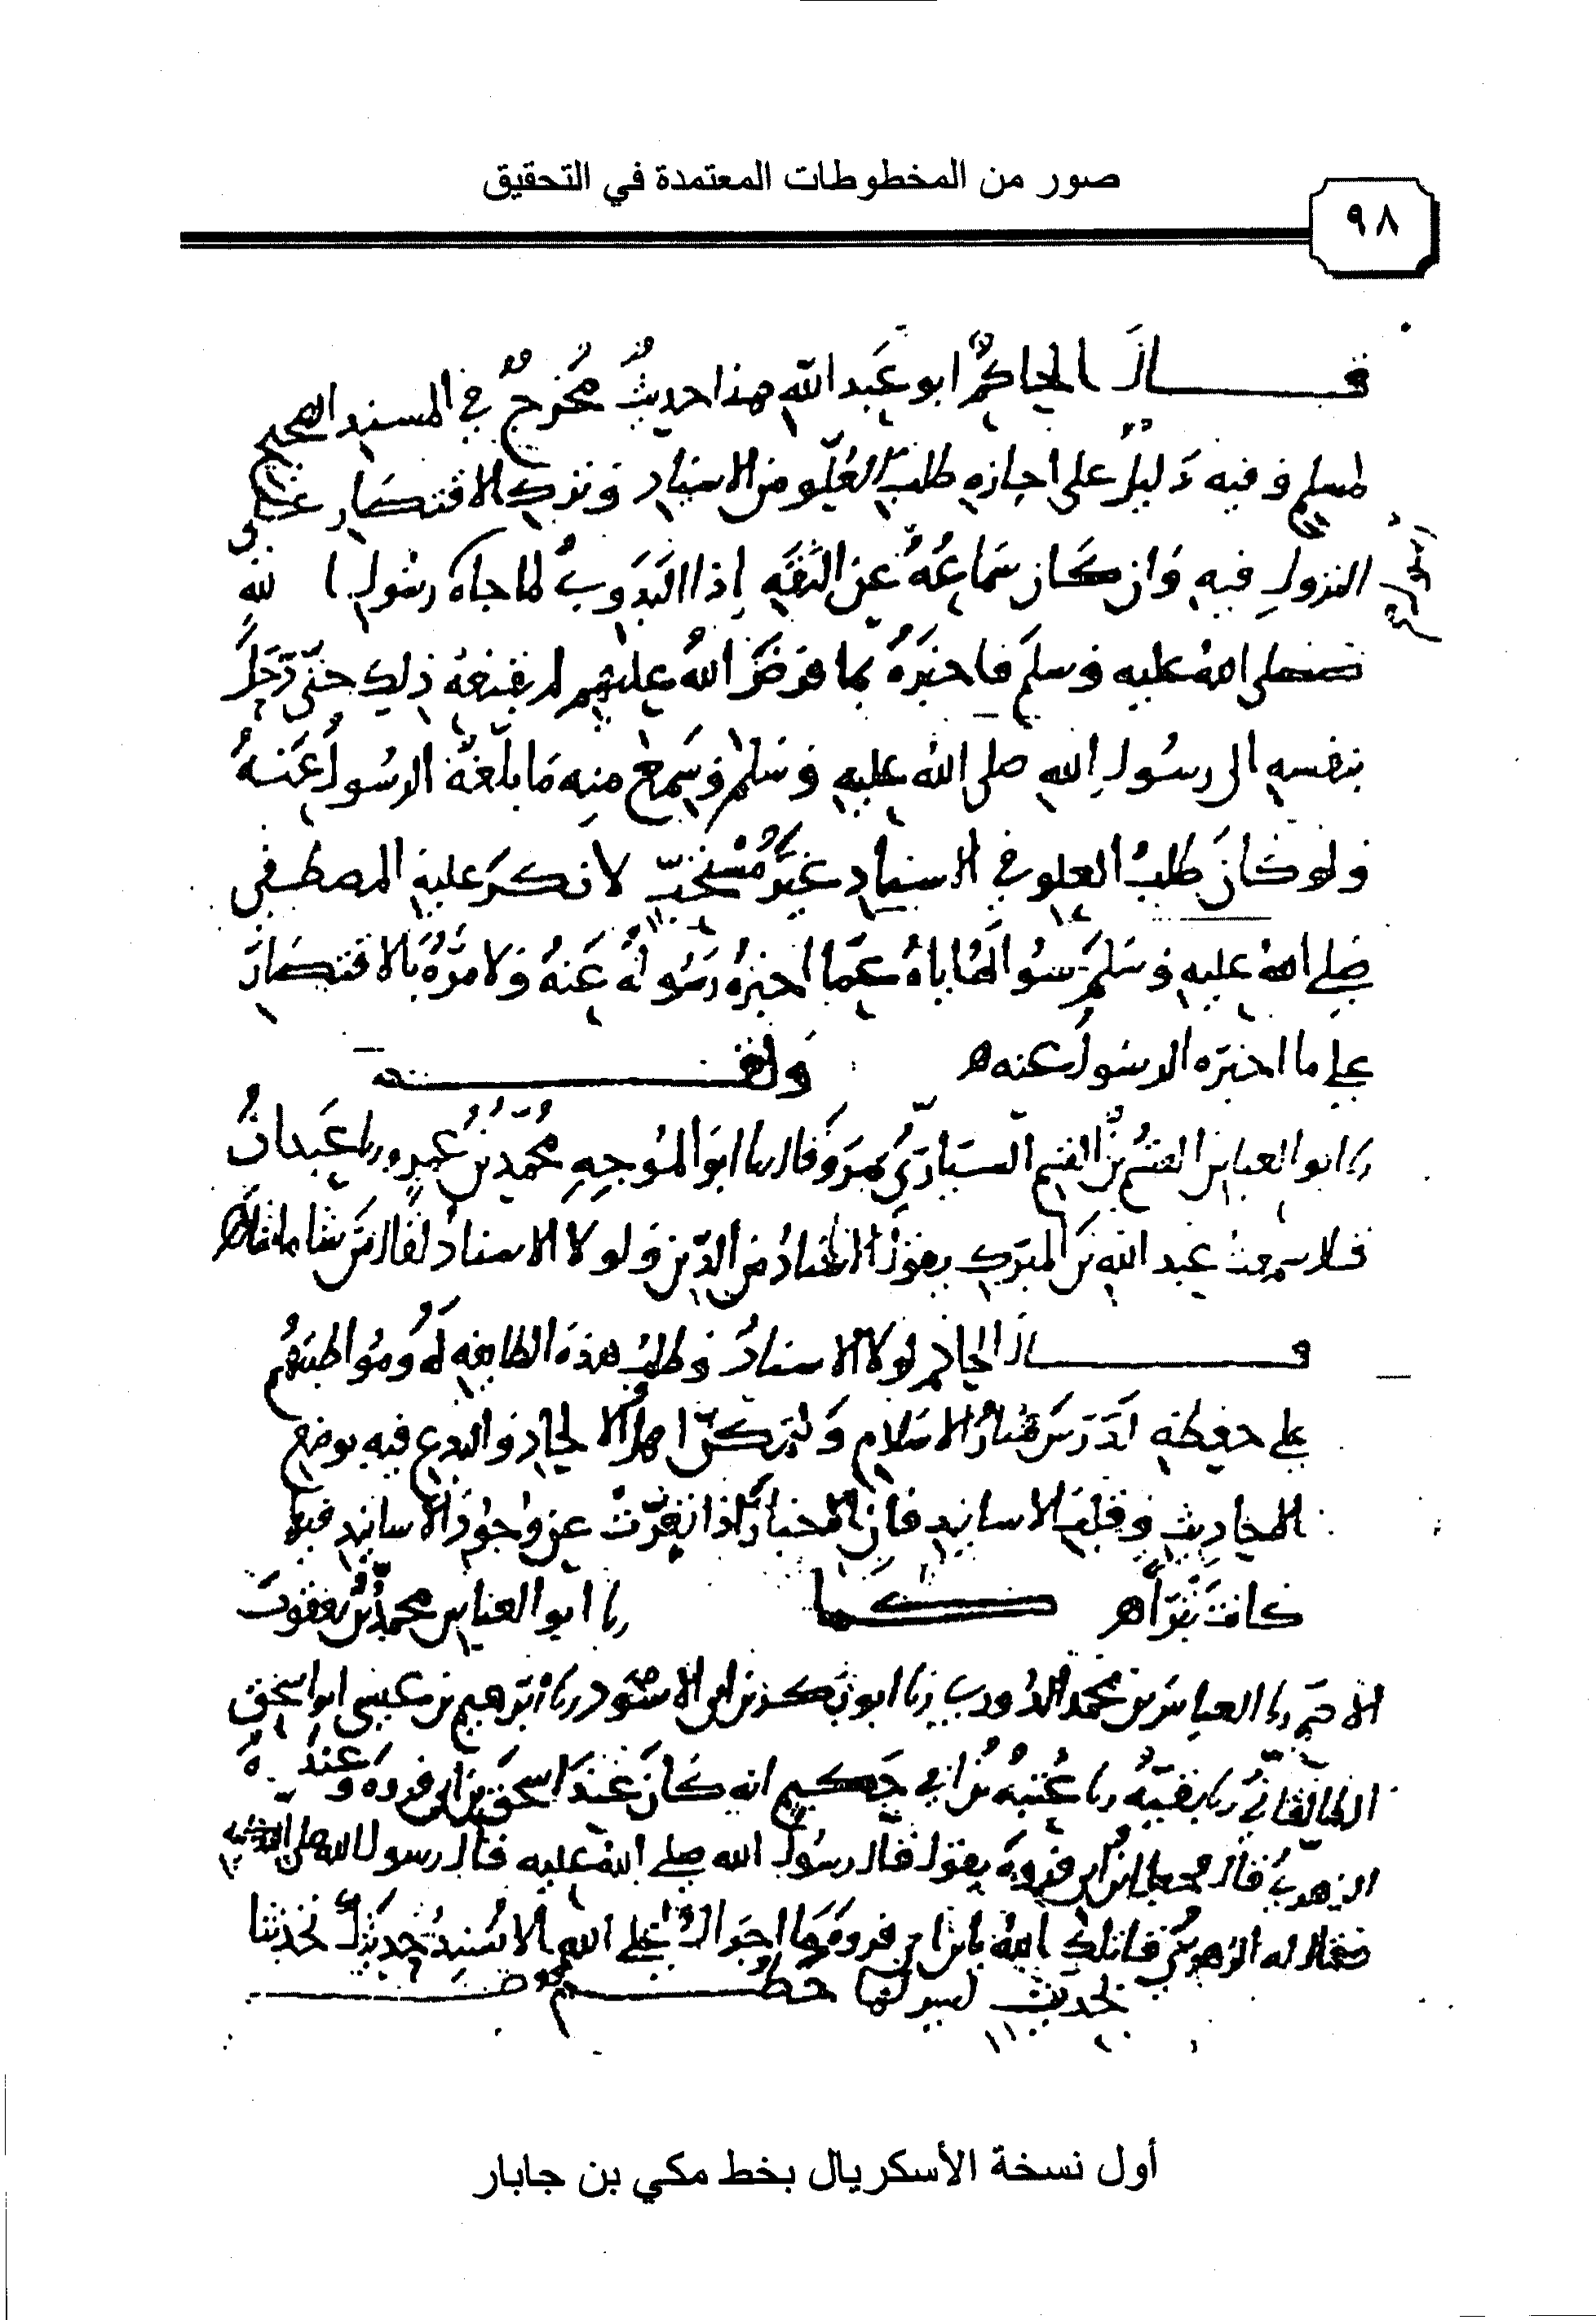 صور من المخطوطات المعتمدة في التحقيق
٩٨
قال الحاكم ابو عبد الله هذا حديث مخرج في المسند الصحيح
لمسلم وفيه دليل على اجازه طلب العلو من الاسناد وترك الاقتصار على
النزول فيه وان كان سماعه عن الثقه اذ البدوي لما جاه رسول الله
صلى الله عليه وسلم فاخبره بما فرض الله عليهم لم يقنعه ذلك حتى رحل
بنفسه الى رسول الله صلى الله عليه وسلم وسمع منه ما بلغه الرسول عنه
ولو كان طلب العلو في الاسناد غير مستحب لانكر عليه المصطفى
صلى الله عليه وسلم سواله اياه عما اخبره رسوله عنه ولامره بالاقتصار
على ما اخبره الرسول عنه ه ولقد
ابو العباس القسم بن القسم السياري بمرو قال ابو الموجه محمد بن عمرو عبدان
قال سمعت عبد الله بن المبرك يقول الاسناد من الدين ولولا الاسناد لقال من شا ما شا ه
قال الحاكم لولا الاسناد وطلب هذه الطايفه له ومواظبتهم
على حفظه لدرس منار الاسلام ولتمكن اهل الالحاد والبدع فيه بوضع
الاحاديث وقلب الاسانيد فان الاخبار اذا تعرت عن وجود الاسانيد فيها
كانت بترا ه كما ابو العباس محمد بن يعقوب
الاصم العباس بن محمد الدوري ابو بكر بن ابي الاسود ابرهيم بن عيسى ابو اسحق
الطالقاني بقيه عتبه بن ابي حكيم انه كان عند اسحق بن ابي فروه وعنده
الزهري قال فجعل ابن ابي فروه يقول قال رسول الله صلى الله عليه قال رسول الله صلى الله عليه
فقال له الزهري قاتلك الله يا بن ابي فروه ما اجراك على الله الا تسند حديثك تحدثنا
بحديث ليس لها خطم
أول نسخة الأسكريال بخط مكي بن جابار